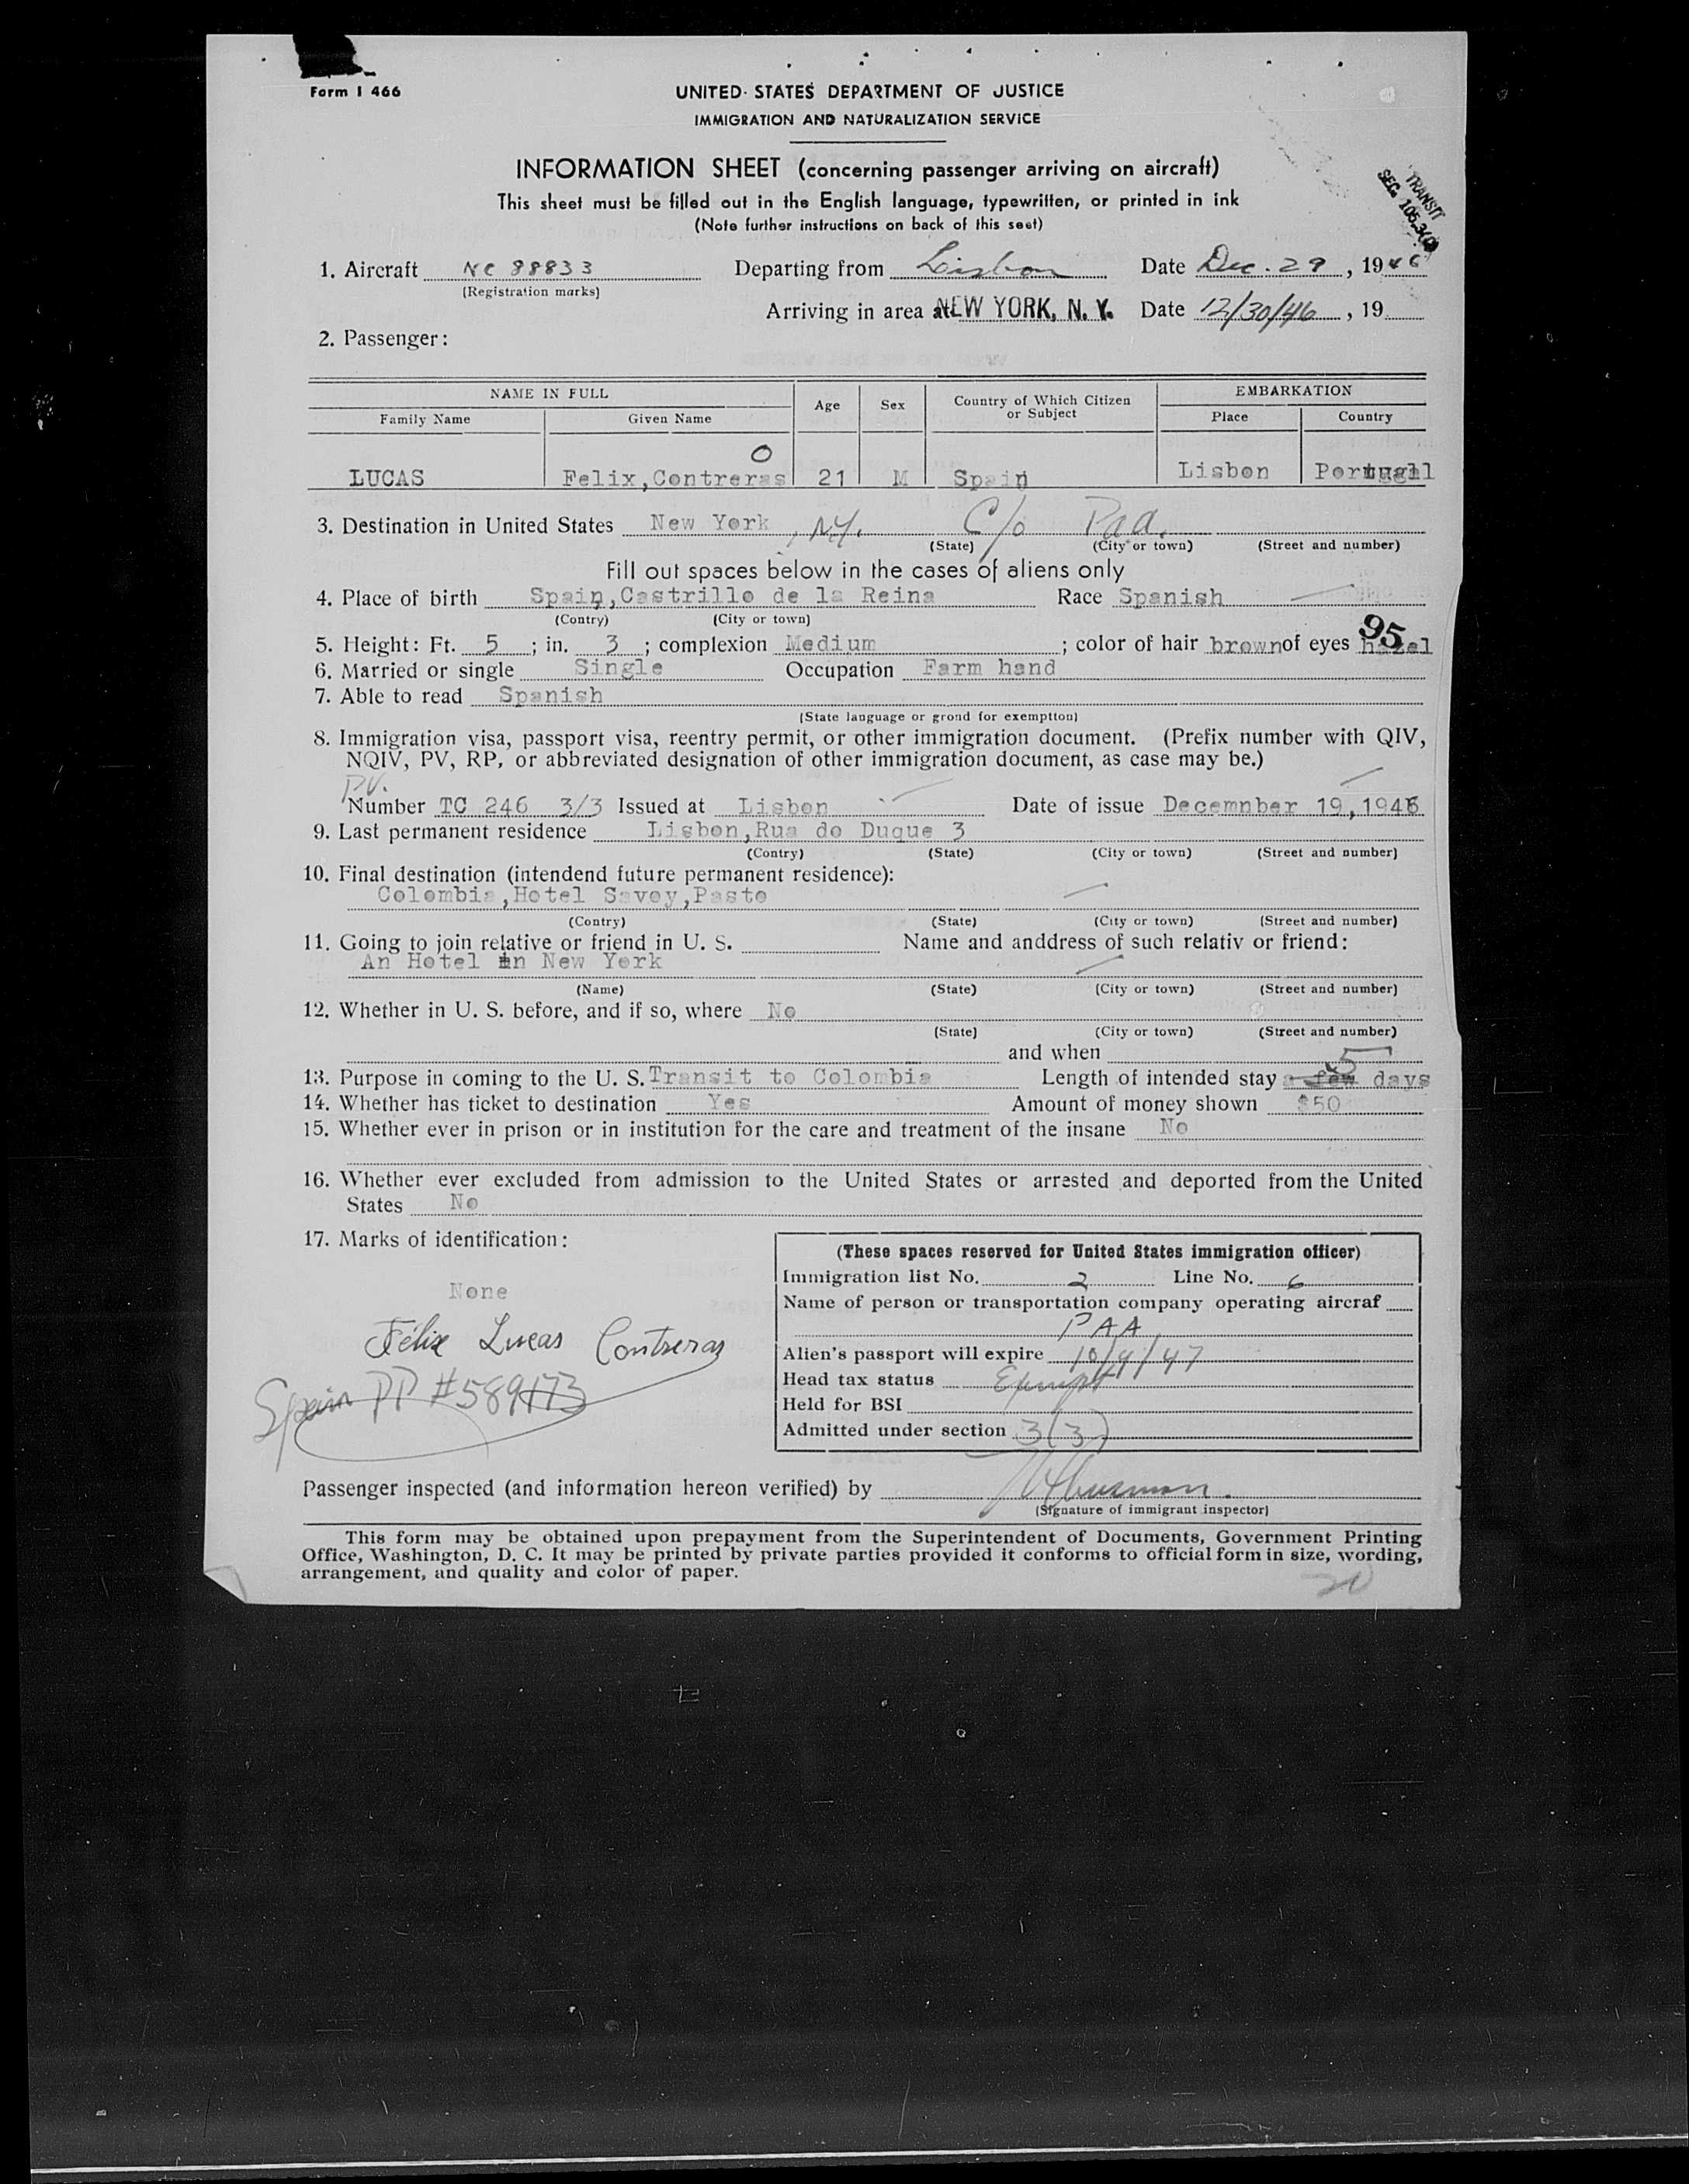 Form I 466
UNITED STATES DEPARTMENT OF JUSTICE
IMMIGRATION AND NATURALIZATION SERVICE
INFORMATION SHEET (concerning passenger arriving on aircraft)
This sheet must be filled out in the English language, typewritten, or printed in ink
(Note further instructions on back of this seet)
TRANSIT
SEC. 105.3(
1. Aircraft NC 88833 Departing from Lisbon Date Dec. 29, 1946
(Registration marks)
Arriving in area at NEW YORK, N. Y. Date 12/30/46, 19
2. Passenger:
NAME IN FULL Age Sex Country of Which Citizen or Subject EMBARKATION
Family Name Given Name Place Country
O
LUCAS Felix,Contreras 21 M Spain Lisbon Portugal
3. Destination in United States New York, N.Y. C/o Paa.
(State) (City or town) (Street and number)
Fill out spaces below in the cases of aliens only
4. Place of birth Spain,Castrillo de la Reina Race Spanish
(Contry) (City or town)
95
5. Height: Ft. 5; in. 3; complexion Medium; color of hair brown of eyes hazel
6. Married or single Single Occupation Farm hand
7. Able to read Spanish
(State language or grond for exemption)
8. Immigration visa, passport visa, reentry permit, or other immigration document. (Prefix number with QIV,
NQIV, PV, RP, or abbreviated designation of other immigration document, as case may be.)
PV.
Number TC 246 3/3 Issued at Lisbon Date of issue Decemnber 19,1946
9. Last permanent residence Lisbon,Rua do Duque 3
(Contry) (State) (City or town) (Street and number)
10. Final destination (intendend future permanent residence):
Colombia,Hotel Savoy,Pasto
(Contry) (State) (City or town) (Street and number)
11. Going to join relative or friend in U. S. Name and anddress of such relativ or friend:
An Hotel in New York
(Name) (State) (City or town) (Street and number)
12. Whether in U. S. before, and if so, where No
(State) (City or town) (Street and number)
and when
5
13. Purpose in coming to the U. S. Transit to Colombia Length of intended stay a few days
14. Whether has ticket to destination Yes Amount of money shown $50
15. Whether ever in prison or in institution for the care and treatment of the insane No
16. Whether ever excluded from admission to the United States or arrested and deported from the United
States No
17. Marks of identification:
None
Félix Lucas Contreras
Spain PP #589173
(These spaces reserved for United States immigration officer)
Immigration list No. 2 Line No. 6
Name of person or transportation company operating aircraf
PAA
Alien's passport will expire 10/9/47
Head tax status Exempt
Held for BSI
Admitted under section 3(3)
Passenger inspected (and information hereon verified) by
(Signature of immigrant inspector)
This form may be obtained upon prepayment from the Superintendent of Documents, Government Printing
Office, Washington, D. C. It may be printed by private parties provided it conforms to official form in size, wording,
arrangement, and quality and color of paper.
20